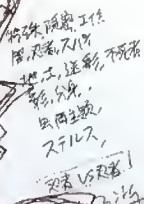 特殊、隠密、工作
闇、忍者、スパイ
地土、迷彩、不死者
影、分身、
虫肉主題、
ステルス、
忍者 VS 忍者!